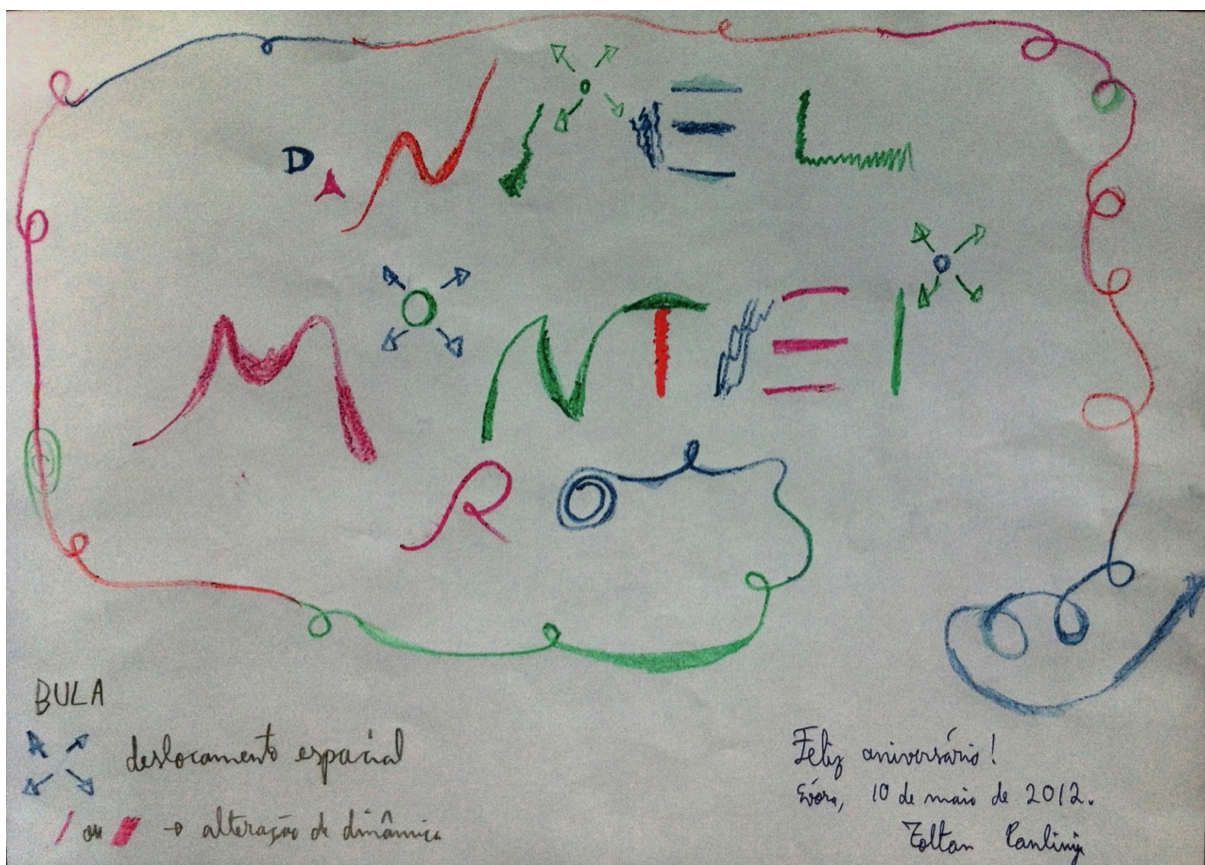 DANIEL
MONTEI
RO
BULA
deslocamento espacial
/ ou → alteração de dinâmica
Feliz aniversário!
Évora, 10 de maio de 2012.
Zoltan Paulinyi